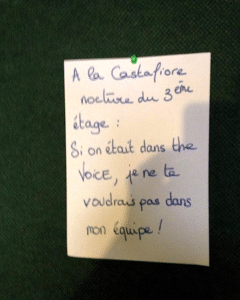 A la Castafiore
nocture du 3ème
étage :
Si on était dans the
VOICE, je ne te
voudrais pas dans
mon équipe !